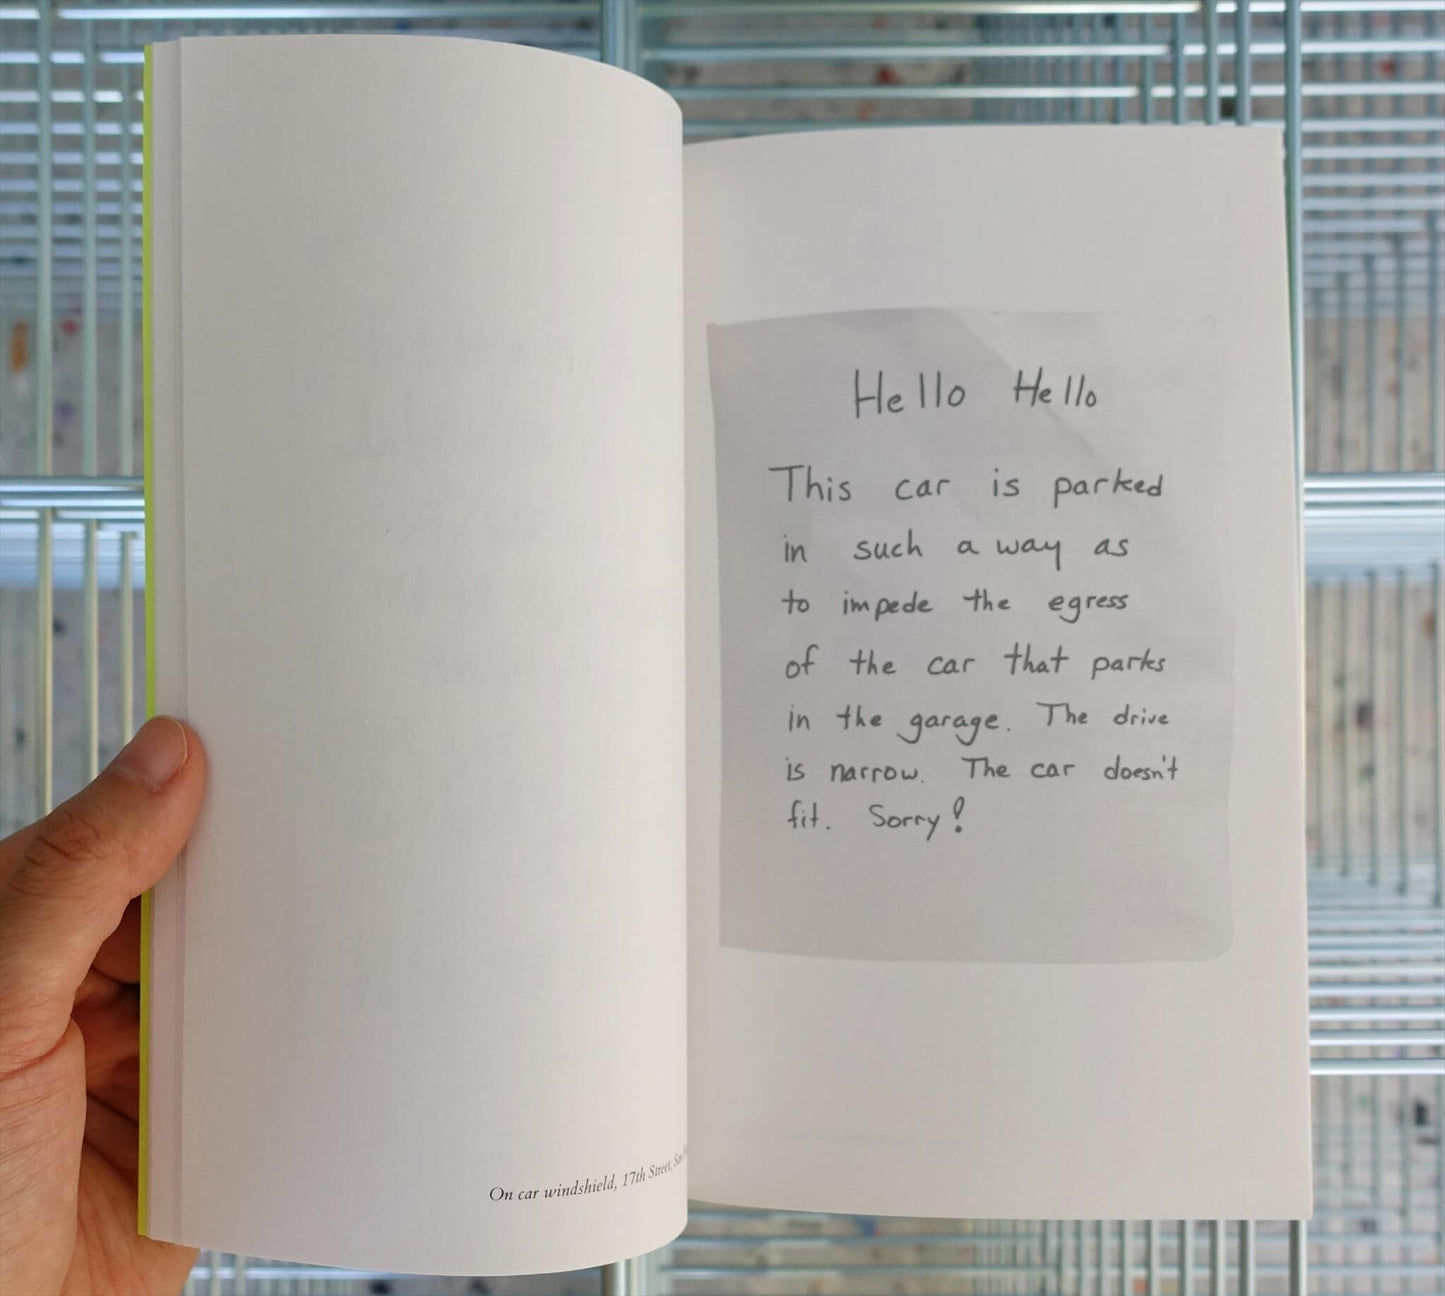 On car windshield, 17th Street, San
Hello Hello
This car is parked
in such a way as
to impede the egress
of the car that parks
in the garage. The drive
is narrow. The car doesn't
fit. Sorry!